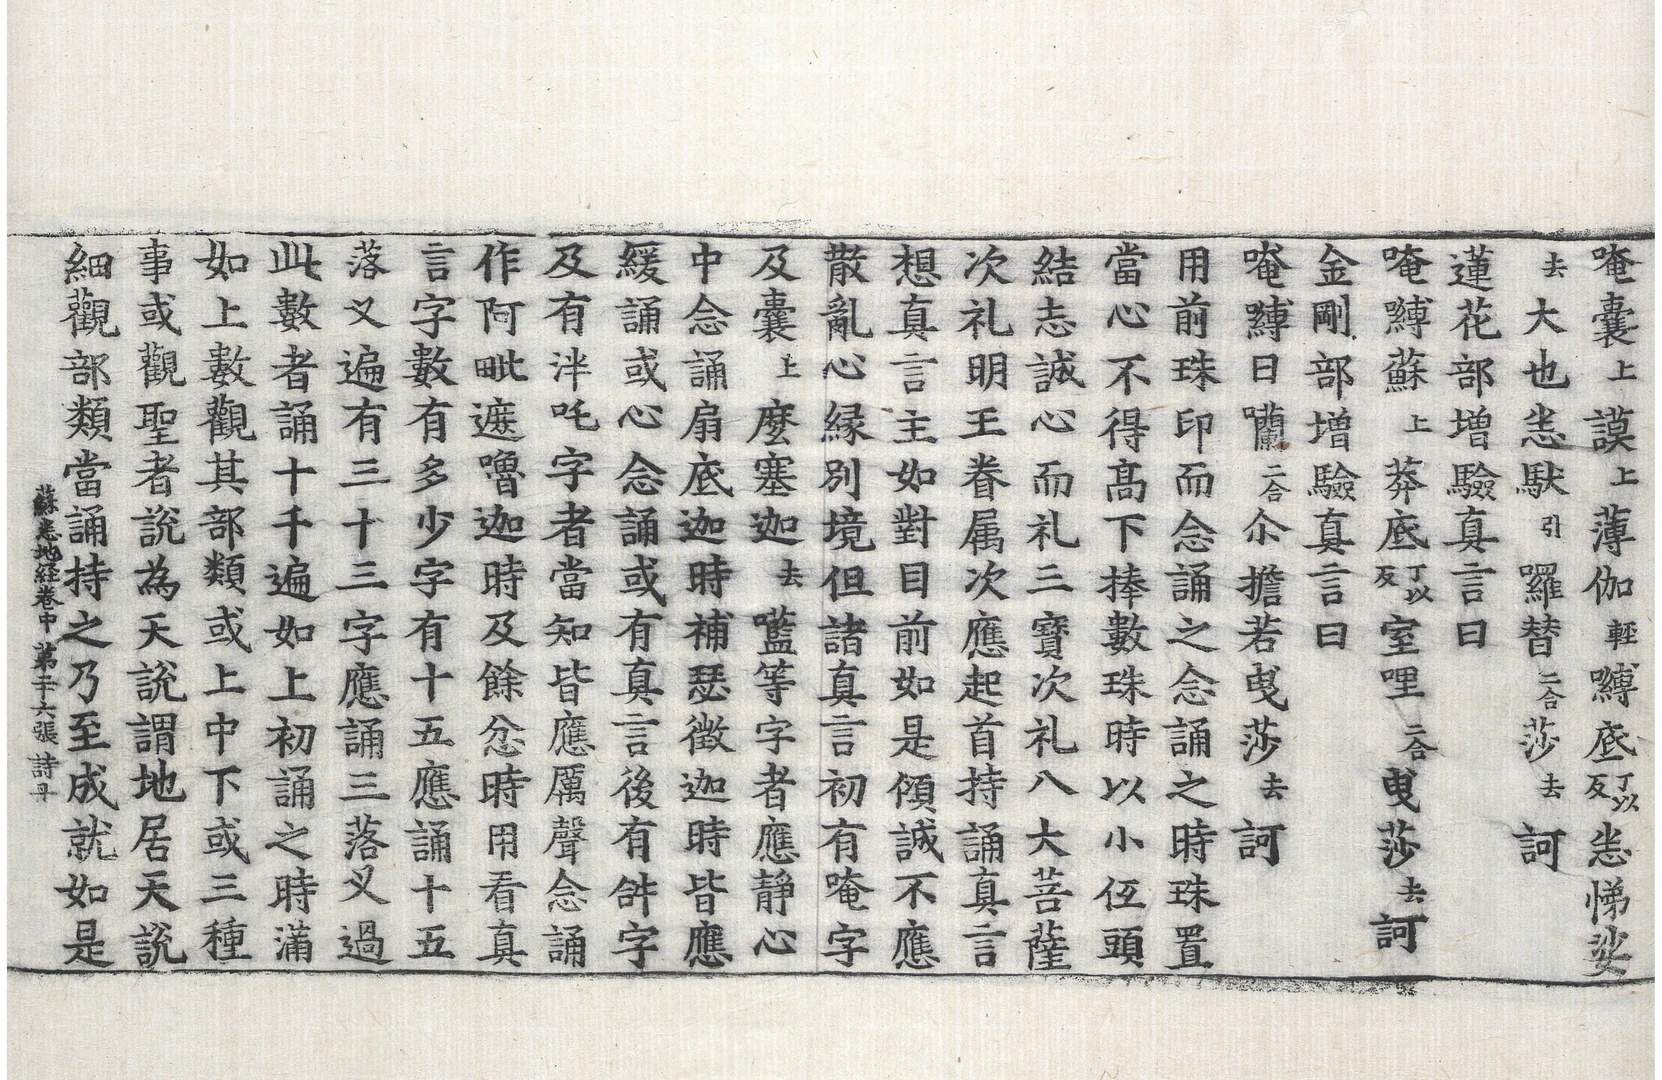 唵囊上謨上薄伽輕嚩底丁以反悉悌娑
去大也悉馱引羅替二合莎去訶
蓮花部增驗真言曰
唵嚩蘇上莽底丁以反室哩二合曳莎去訶
金剛部增驗真言曰
唵嚩日囒二合尒擔若曳莎去訶
用前珠印而念誦之念誦之時珠置
當心不得髙下捧數珠時以小伍頭
結志誠心而礼三寶次礼八大菩薩
次礼明王眷属次應起首持誦真言
想真言主如對目前如是傾誠不應
散亂心縁別境但諸真言初有唵字
及囊上麼塞迦去㘕等字者應靜心
中念誦扇底迦時補瑟徵迦時皆應
緩誦或心念誦或有真言後有𤙖字
及有泮吒字者當知皆應厲聲念誦
作阿毗遮嚕迦時及餘忿時用看真
言字數有多少字有十五應誦十五
落叉遍有三十三字應誦三落叉過
此數者誦十千遍如上初誦之時滿
如上數觀其部類或上中下或三種
事或觀聖者說為天說謂地居天說
細觀部類當誦持之乃至成就如是
蘇悉地経卷中 第二十六張 詩丹